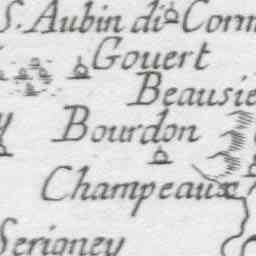 S. Aubin di Corm
Gouert
Beausie
Bourdon
Champeaux
Serigney